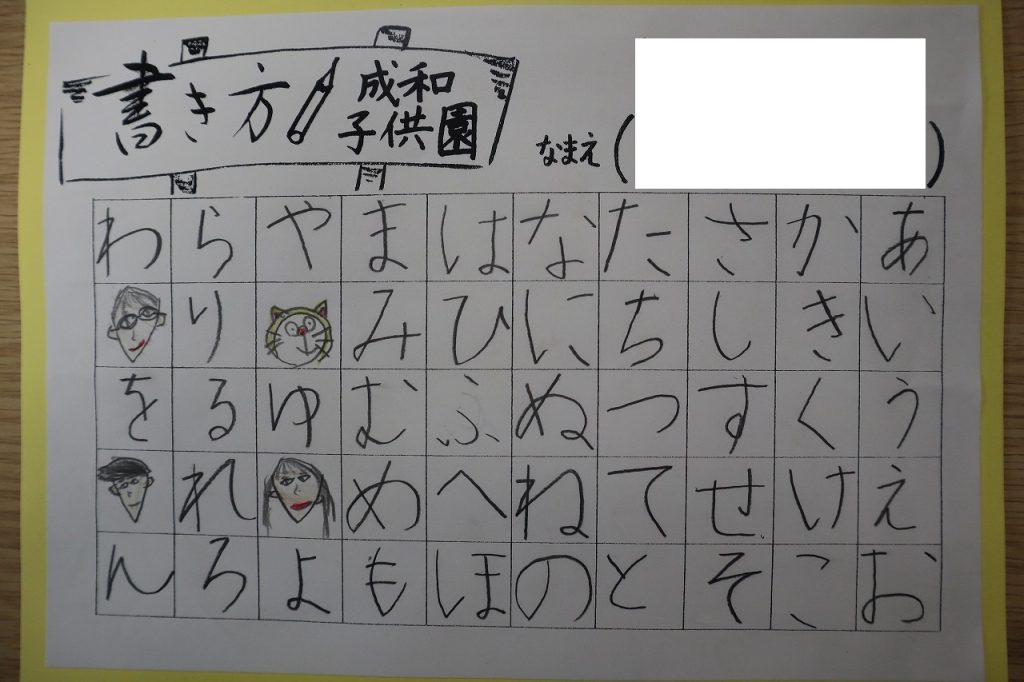 書き方
成和
子供園
なまえ( )
あいうえお
かきくけこ
さしすせそ
たちつてと
なにぬねの
はひふへほ
まみむめも
やゆよ
らりるれろ
わをん